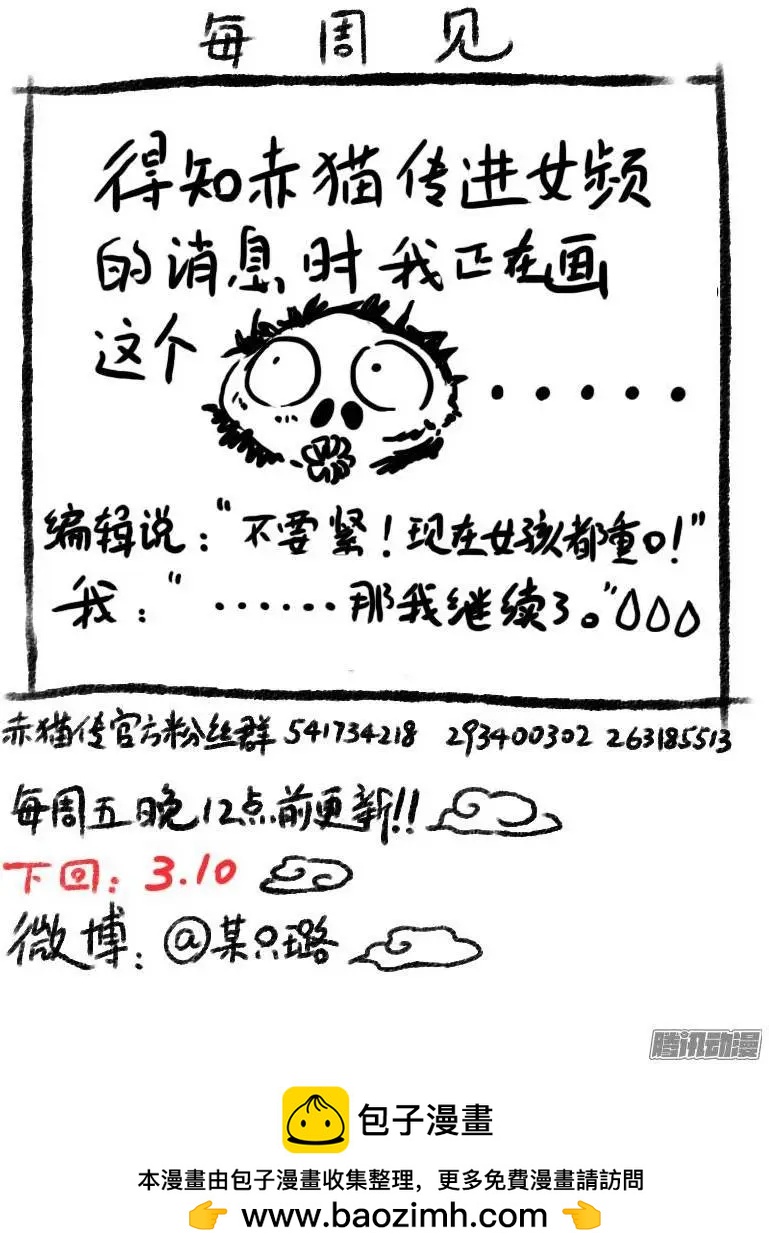 每周见
得知赤猫传进女频
的消息时我正在画
这个 ·····
编辑说：“不要紧！现在女孩都重口！”
我：“······那我继续了。”
赤猫传官方粉丝群 541734218 293400302 263185513
每周五晚12点前更新!!
下回：3.10
微博：@某只璐
腾讯动漫
包子漫畫
本漫畫由包子漫畫收集整理，更多免費漫畫請訪問
👉 www.baozimh.com 👈